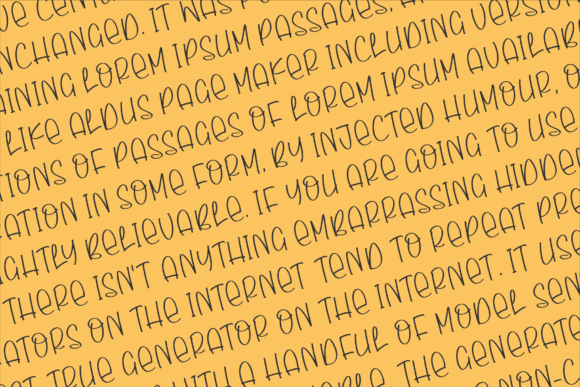 VE CEN
NCHANGED. IT WAS
AINING LOREM IPSUM PASSAGES,
LIKE ALDUS PAGE MAKER INCLUDING VERSION
TIONS OF PASSAGES OF LOREM IPSUM AVAILAB
RATION IN SOME FORM, BY INJECTED HUMOUR, O
GHTLY BELIEVABLE. IF YOU ARE GOING TO USE
THERE ISN'T ANYTHING EMBARRASSING HIDDE
ATORS ON THE INTERNET TEND TO REPEAT PRE
TRUE GENERATOR ON THE INTERNET. IT USE
WITH A HANDFUL OF MODEL SEN
THE GENERATE
NON-C